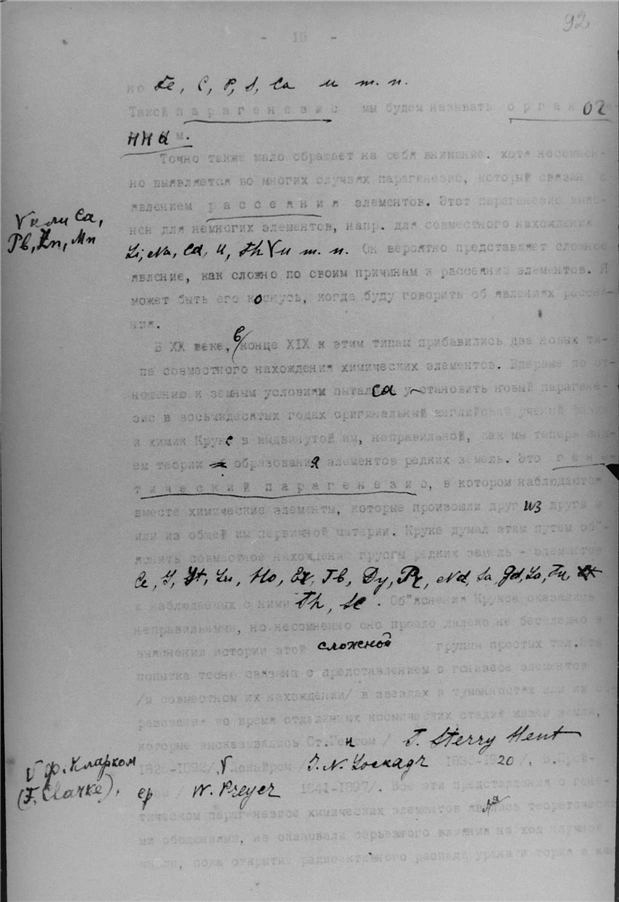 92
- 15 -
но Fe, C, P, S, Ca и т.п.
Такой парагенезис мы будем называть органо
нным.
Точно также мало обращает на себя внимание, хотя несомнен-
но выявляется во многих случаях парагенезис, который связан с
явлением рассеяния элементов. Этот парагенезис
V или Ca,
Pb, Zn, Mn
нен для немногих элементов, напр. для совместного нахождения
Li, Na, Cd, U, Th V и т.п. Он вероятно представляет сложное
явление, как сложно по своим причинам и рассеяние элементов. Я
может быть его коснусь, когда буду говорить об явлениях рассея-
ния.
В XX веке, в конце XIX к этим типам прибавились два новых ти-
па совместного нахождения химических элементов. Впервые по от-
ношению к земным условиям пытался установить новый парагене-
зис в восьмидесятых годах оригинальный английский ученый физик
и химик Крукс в выдвинутой им, неправильной, как мы теперь зна-
ем теории образования элементов редких земель. Это гене-
тический парагенезис, в котором наблюдаются
вместе химические элементы, которые произошли друг из друга и
или из общей им первичной материи. Крукс думал этим путем об"-
яснить совместное нахождение группы редких земель - элементов
Ce, Y, Yt, Lu, Ho, Er, Tb, Dy, Pr, Nd, La, Gd,
Th, Sc.
и наблюдаемых с ними Об"яснения Крукса оказались
неправильными, но несомненно оно прошло далеко не бесследно в
выяснении истории этой сложной группы простых тел. Эта
попытка тесно связана с представлением о генезисе элементов
/и совместном их нахождении/ в звездах и туманностях или их об-
разование во время отдаленных космических стадий жизни земли,
которые высказывались Ст. Гентом / T. Sterry Hunt
1826-1892/, V J. N. Lockyer 1836-1920/, В. Прей-
V Ф. Кларком
(F. Clarke),
ер W. Preyer 1841-1897/. Все эти представления о гене-
тическом парагенезисе химических элементов являлись теоретическ
ми обобщениями, не оказывали серьезного влияния на ход научной
мысли, пока открытие радиоактивного распада урана и тория и